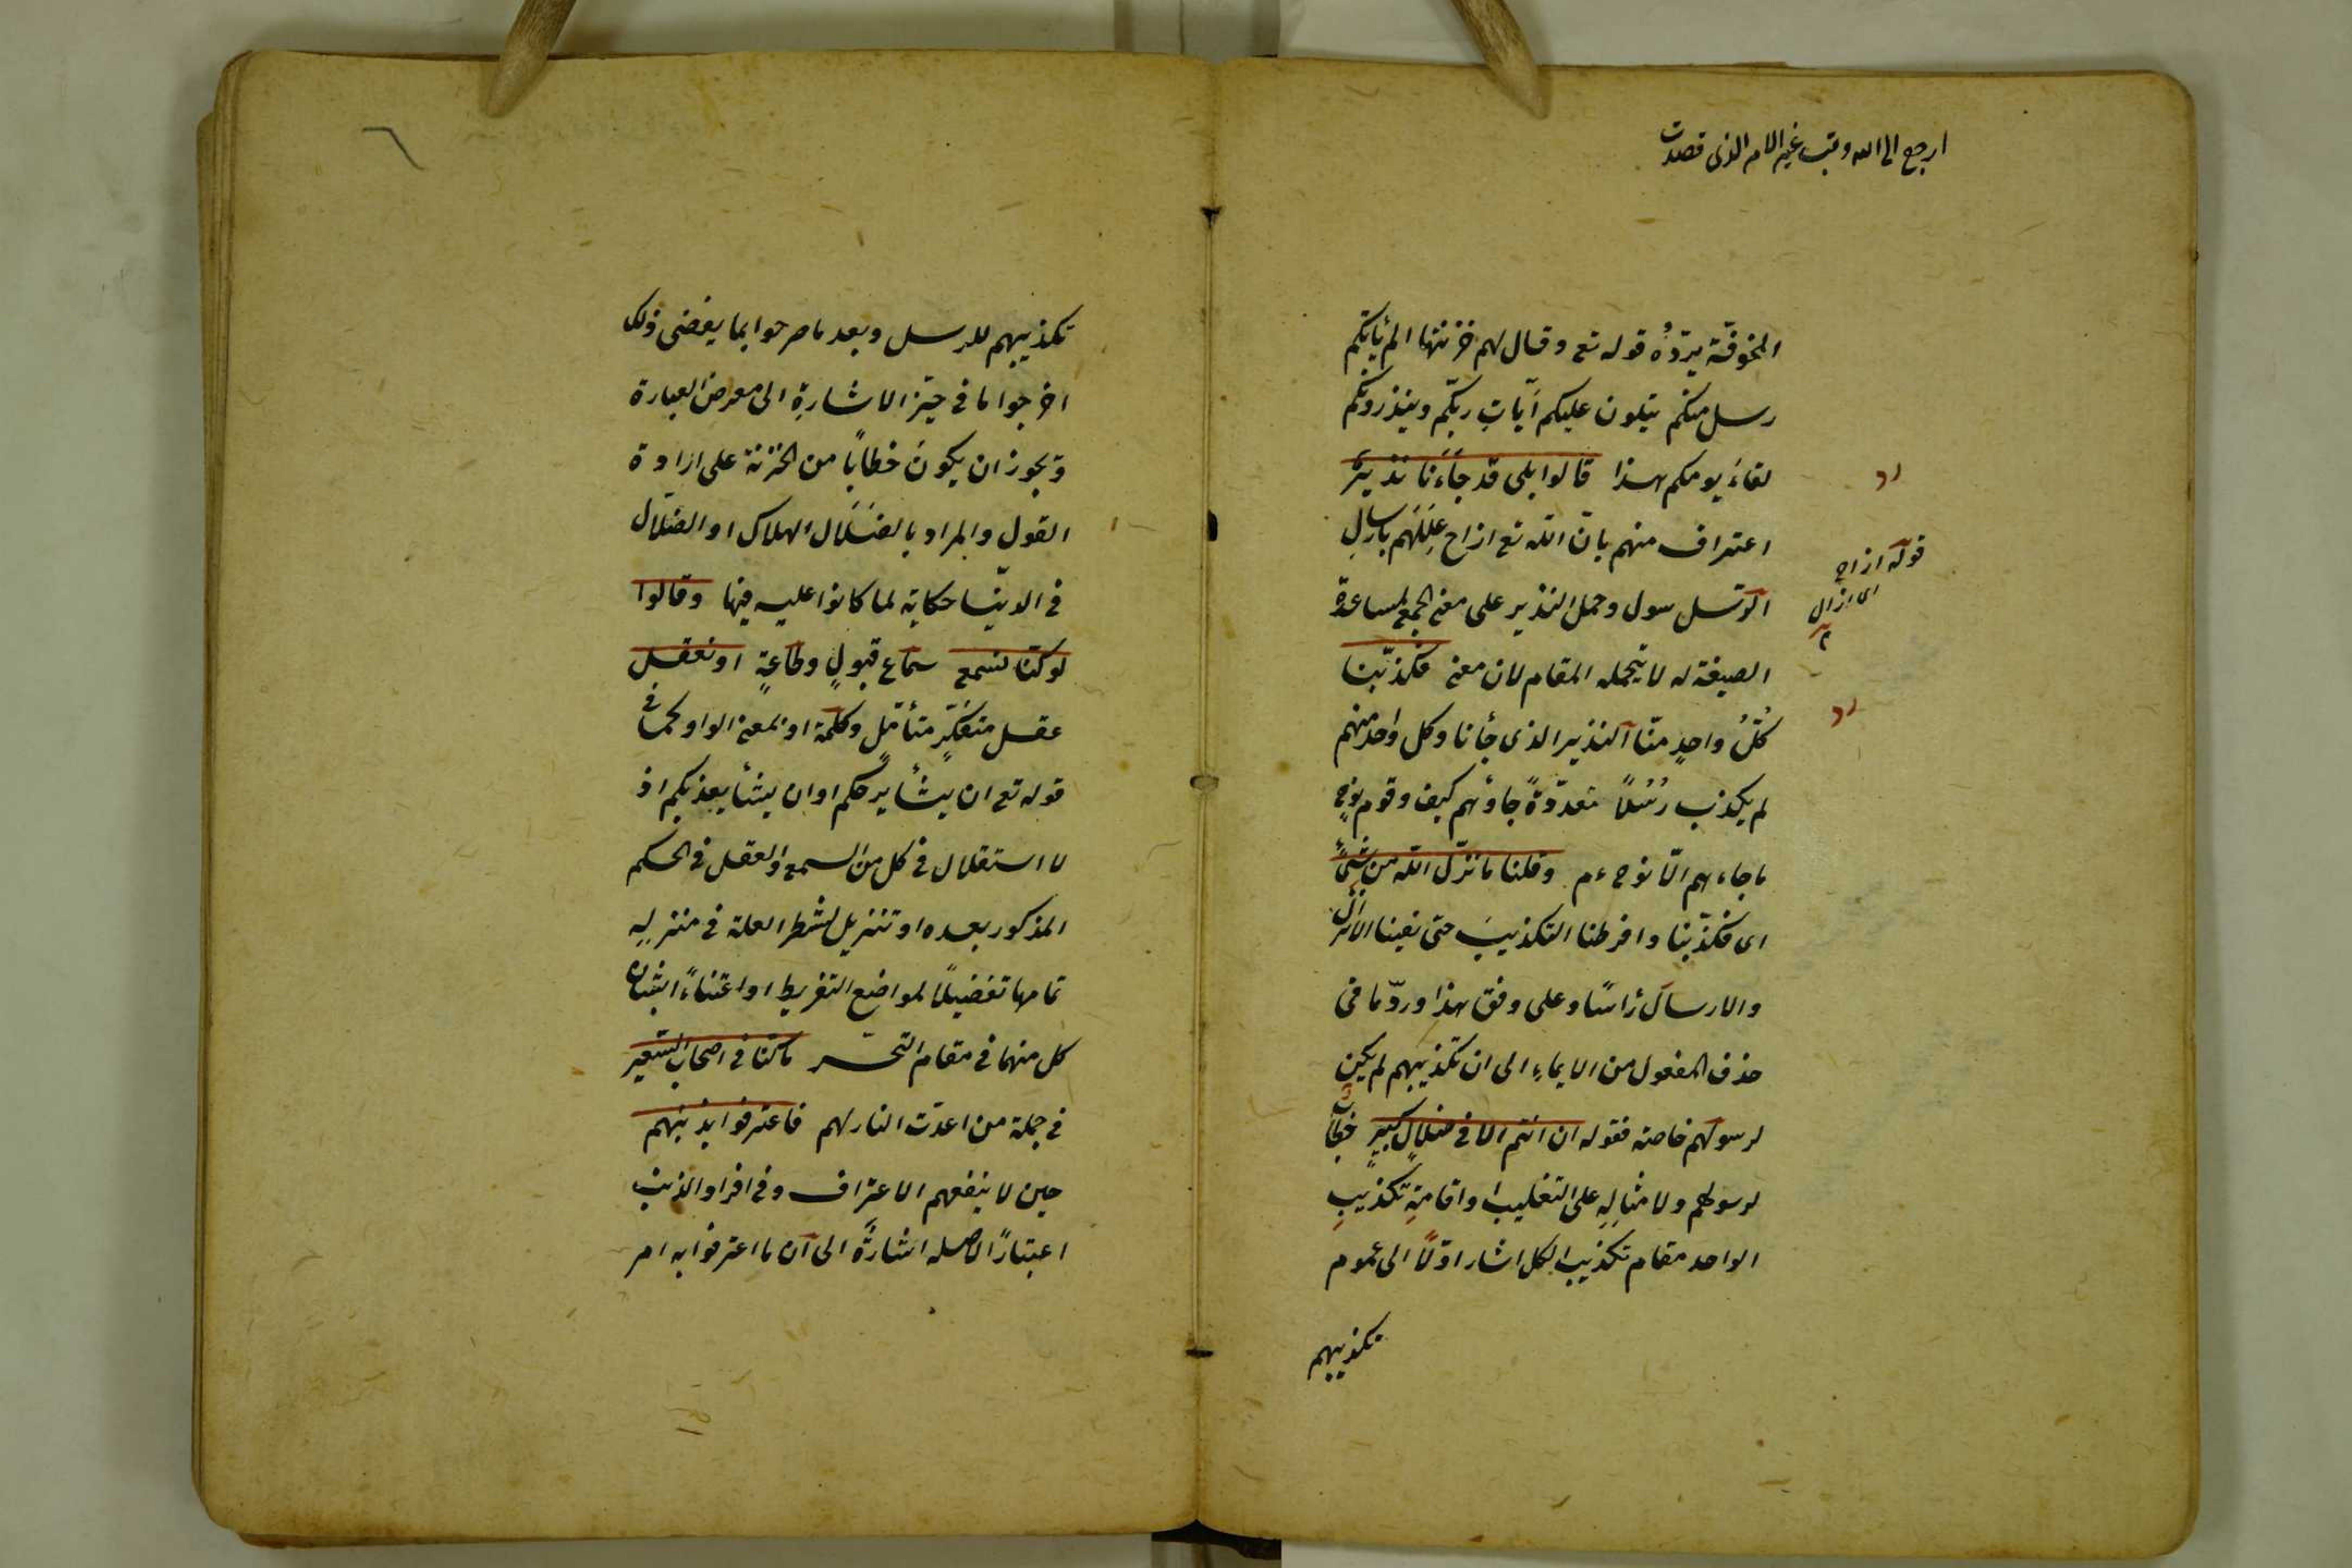 ارجع الى الله وتب غير الامر الذى قصدت
المخوفة يردّه قوله تع وقال لهم خزنتها الم يأتكم
رسل منكم يتلون عليكم آيات ربكم وينذرونكم
لقاء يومكم هذا قالوا بلى قد جاءنا نذير
اعتراف منهم بان الله تع ازاح عللهم بارسال
الرسل سول وحمل النذير على معنى الجمع لمساعدة
الصيغة له لا يتحمله المقام لان معنى فكذبنا
كل واحد منا النذير الذى جأنا وكل واحد منهم
لم يكذب رسلا متعددة جاؤهم كيف وقوم نوح
ما جاءهم الا نوح ءم وقلنا ما نزل الله من شئ
اى فكذبنا وافرطنا التكذيب حتى نفينا الانزال
والارسال رأسا وعلى وفق هذا ورد ما فى
حذف المفعول من الايماء الى ان تكذيبهم لم يكن
لرسولهم خاصة فقوله ان انتم الا فى ضلال كبير خطاب
لرسولهم ولامثاله على التغليب او اقامة تكذيب
الواحد مقام تكذيب الكل اشار اولا الى عموم
تكذيبهم
قوله ازاح
اى ازال
تكذيبهم للرسل وبعد ما صرحوا بما يفضى ذلك
اخرجوا ما فى حيز الاشارة الى معرض العبارة
ويجوز ان يكون خطابا من الخزنة على ارادة
القول والمراد بالضلال الهلاك او الضلال
فى الدنيا حكاية لما كانوا عليه فيها وقالوا
لو كنا نسمع سماع قبول وطاعة او نعقل
عقل متفكر متأمل وكلمة او بمعنى الواو كما فى
قوله تع ان يشأ يرحمكم او ان يشأ يعذبكم اذ
لا استقلال فى كل من السمع والعقل فى الحكم
المذكور بعده او تنزيل لشطر العلة فى منزلة
تمامها تفضيلا لمواضع التفريط او اعتناء بشان
كل منهما فى مقام التحسر ما كنا فى اصحاب السعير
فى جملة من اعدت النار لهم فاعترفوا بذنبهم
حين لا ينفعهم الاعتراف وفى افراد الذنب
اعتبارا لاصله اشارة الى ان ما اعترفوا به امر